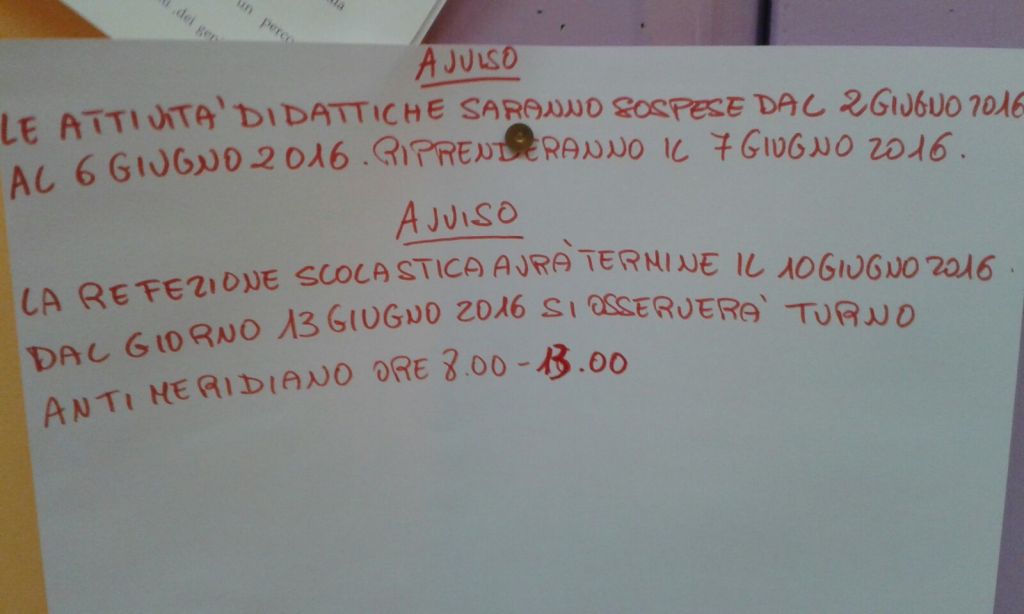 un perco
dei gen
AVVISO
LE ATTIVITA' DIDATTICHE SARANNO SOSPESE DAL 2 GIUGNO 2016
AL 6 GIUGNO 2016. RIPRENDERANNO IL 7 GIUGNO 2016.
AVVISO
LA REFEZIONE SCOLASTICA AVRA' TERMINE IL 10 GIUGNO 2016.
DAL GIORNO 13 GIUGNO 2016 SI OSSERVERA' TURNO
ANTIMERIDIANO ORE 8.00-13.00